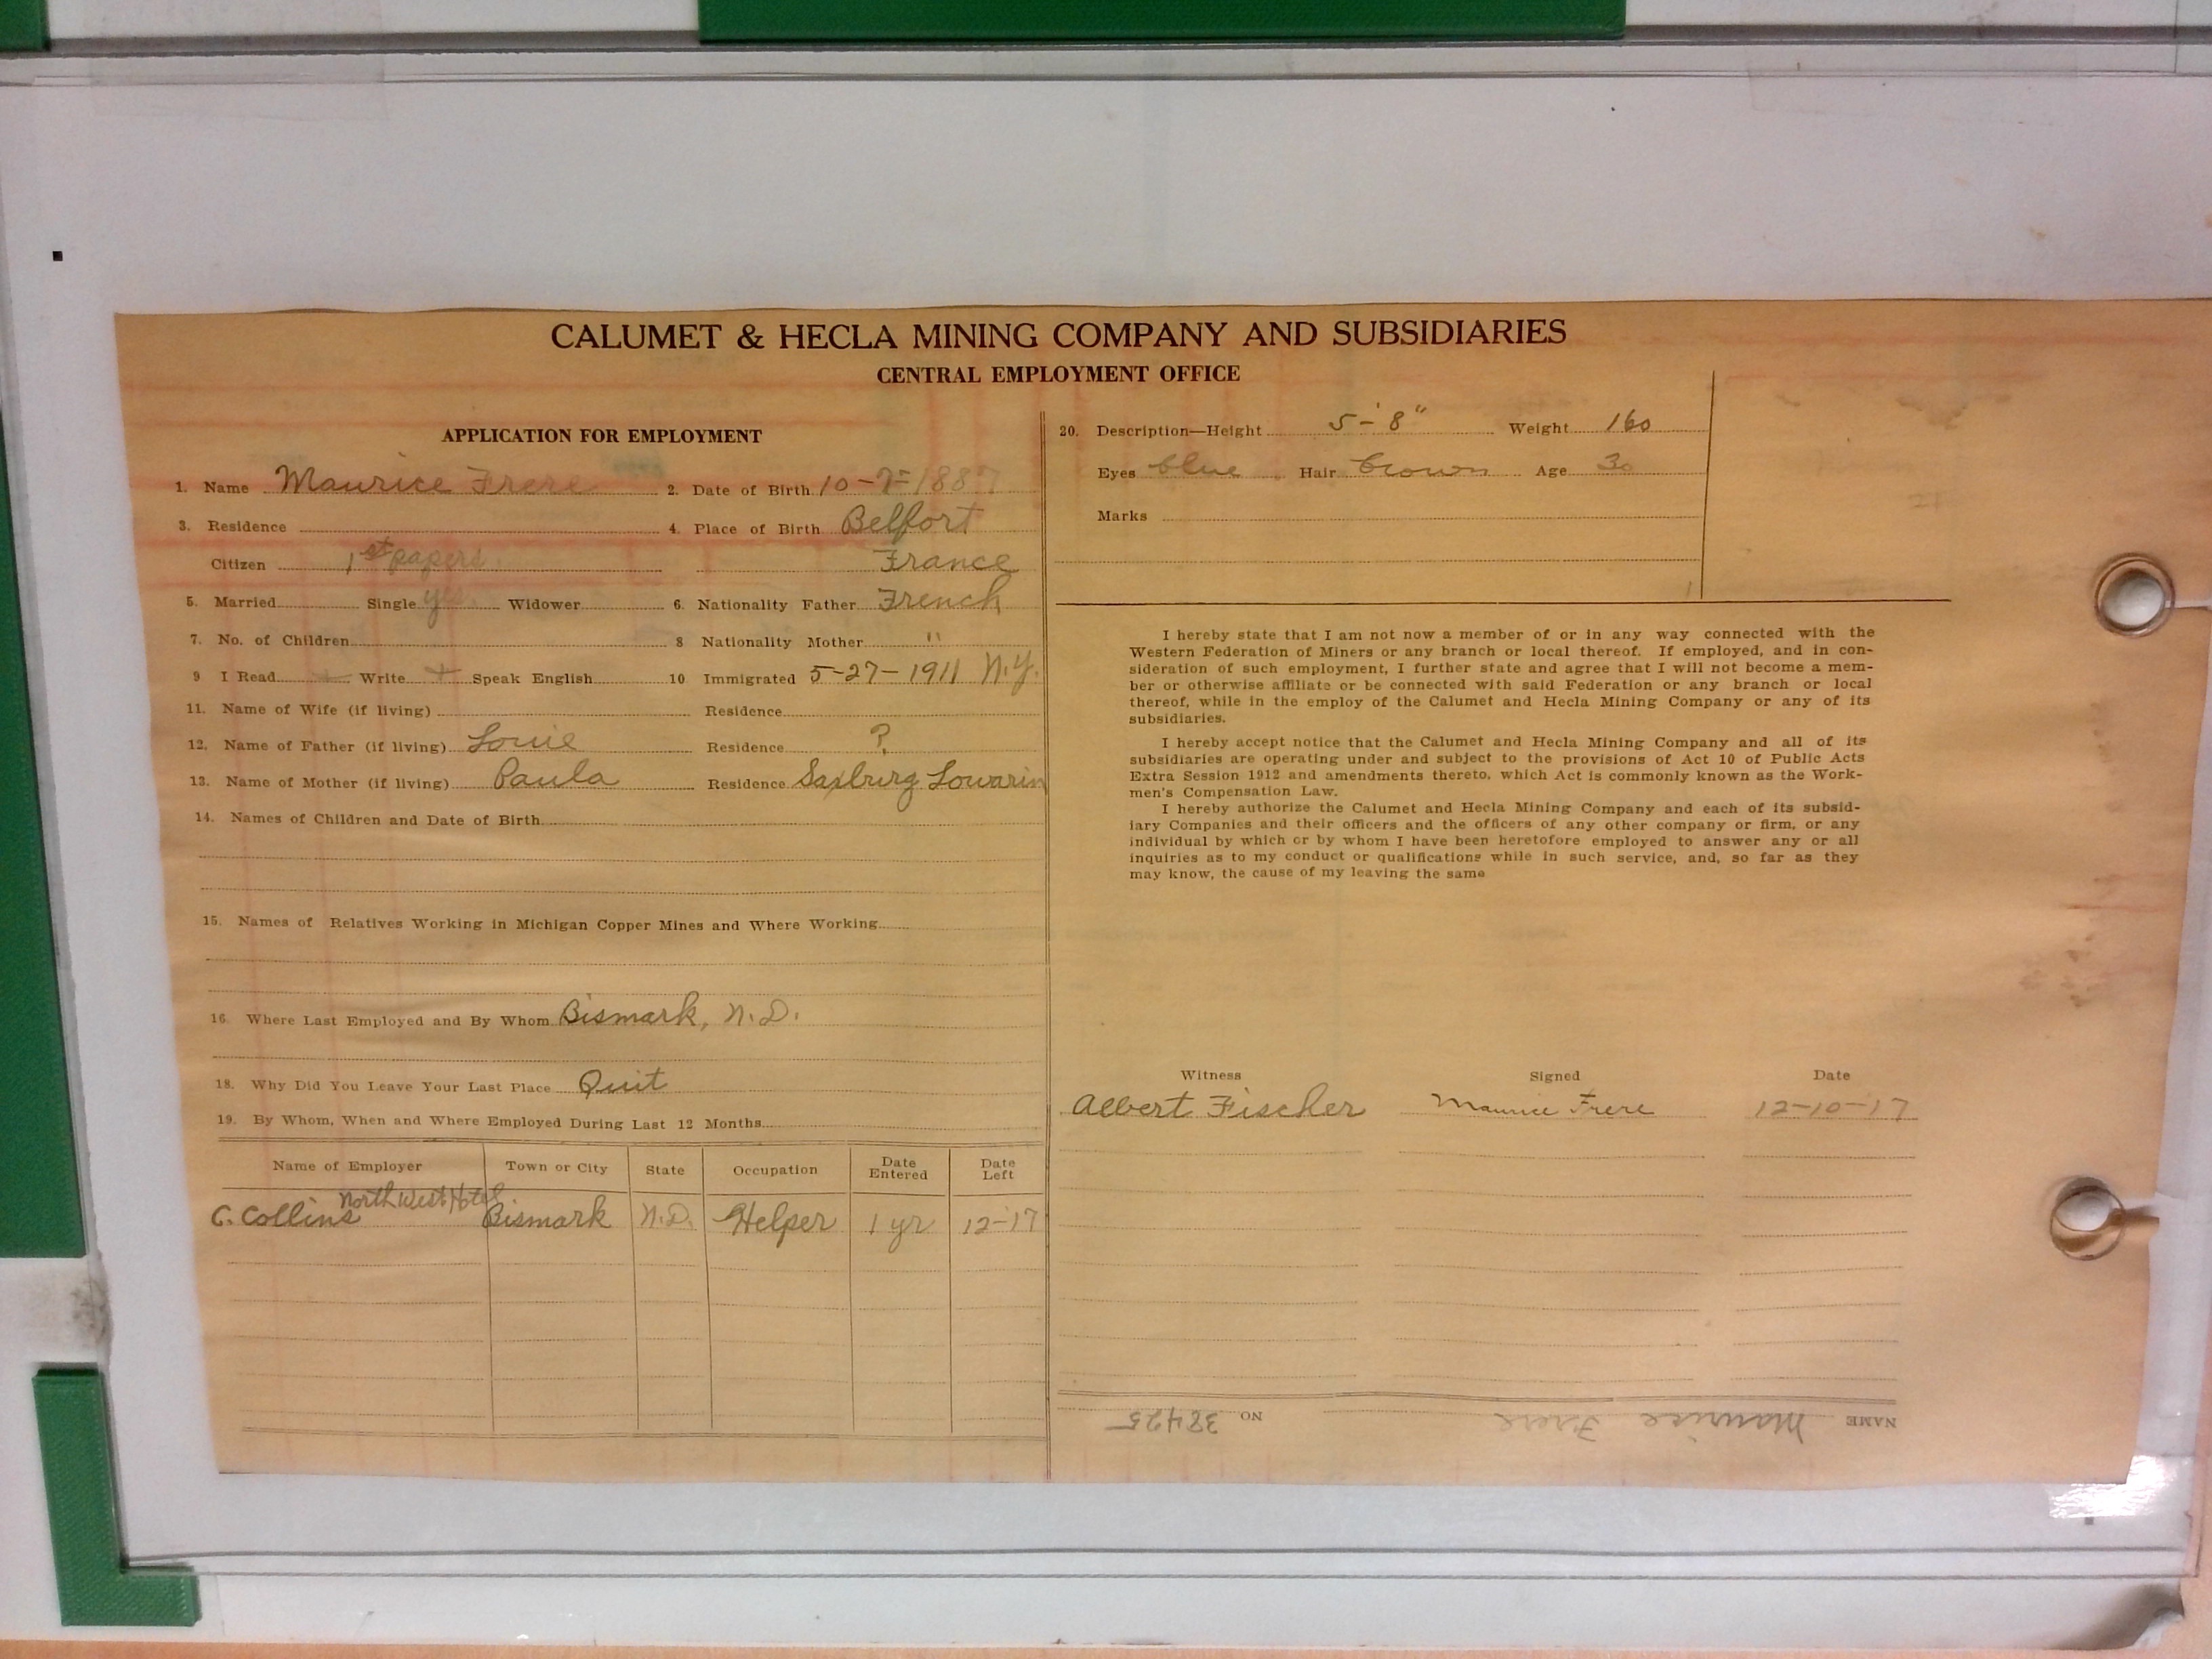 CALUMET & HECLA MINING COMPANY AND SUBSIDIARIES
CENTRAL EMPLOYMENT OFFICE
APPLICATION FOR EMPLOYMENT
1. Name Maurice Frere 2. Date of Birth 10-7-1887
3. Residence 4. Place of Birth Belfort
Citizen 1st papers. France
5. Married Single yes. Widower 6. Nationality Father French
7. No. of Children 8 Nationality Mother "
9 I Read + Write + Speak English 10 Immigrated 5-27-1911 N.Y.
11. Name of Wife (if living) Residence
12. Name of Father (if living) Louie Residence ?
13. Name of Mother (if living) Paula Residence
14. Names of Children and Date of Birth
15. Names of Relatives Working in Michigan Copper Mines and Where Working
16. Where Last Employed and By Whom Bismark, N.D.
18. Why Did You Leave Your Last Place Quit
19. By Whom, When and Where Employed During Last 12 Months
Name of Employer Town or City State Occupation Date Entered Date Left
North West Hotel
C. Collins Bismark N.D. Helper 1 yr 12-17
20. Description—Height 5'-8" Weight 160
Eyes blue Hair brown Age 30
Marks
I hereby state that I am not now a member of or in any way connected with the
Western Federation of Miners or any branch or local thereof. If employed, and in con-
sideration of such employment, I further state and agree that I will not become a mem-
ber or otherwise affiliate or be connected with said Federation or any branch or local
thereof, while in the employ of the Calumet and Hecla Mining Company or any of its
subsidiaries.
I hereby accept notice that the Calumet and Hecla Mining Company and all of its
subsidiaries are operating under and subject to the provisions of Act 10 of Public Acts
Extra Session 1912 and amendments thereto, which Act is commonly known as the Work-
men's Compensation Law.
I hereby authorize the Calumet and Hecla Mining Company and each of its subsid-
iary Companies and their officers and the officers of any other company or firm, or any
individual by which or by whom I have been heretofore employed to answer any or all
inquiries as to my conduct or qualifications while in such service, and, so far as they
may know, the cause of my leaving the same
Witness Signed Date
Albert Fischer Maurice Frere 12-10-17
NAME Maurice Frere NO 38425